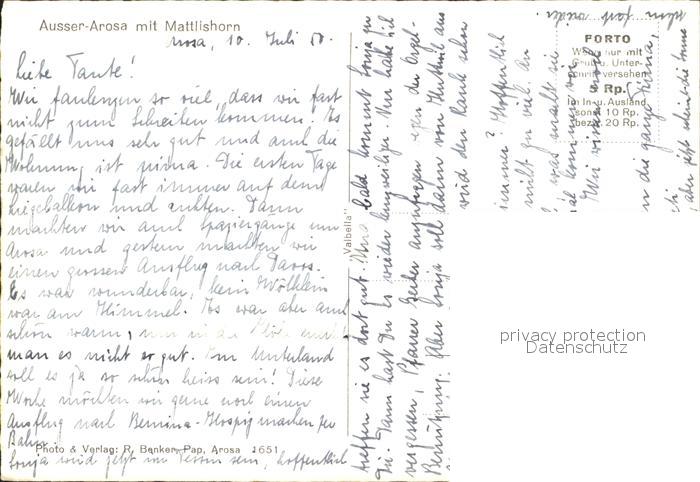 Ausser-Arosa mit Mattlishorn
Arosa, 10. Juli 50.
Liebe Tante!
Wir faulenzen so viel, dass wir fast
nicht zum Schreiben kommen. Es
gefällt uns sehr gut und auch die
Wohnung ist prima. Die ersten Tage
waren wir fast immer auf dem
Liegebalkon und ruhten. Dann
machten wir auch Spaziergänge um
Arosa und gestern machten wir
einen grossen Ausflug nach Davos.
Es war wunderbar, kein Wölklein
war am Himmel. Es war aber auch
schön warm, nur in der Höhe merkt
man es nicht so gut. Im Unterland
soll es ja so schön heiss sein! Diese
Woche möchten wir gerne noch einen
Ausflug nach Bernina-Hospiz machen per
Bahn.
Photo & Verlag: R. Benker-Pap, Arosa 1651
Sonja wird jetzt im Tessin sein, hoffentlich
"Valbella"
treffen sie es dort gut. Und bald kommt Sonja zu
Dir. Dann hast Du es wieder kurzweiliger. Nun habe ich
vergessen, Pfarrer anzufragen wegen der Orgel-
Benützung. Aber Sonja soll dann von
wird den Rank schon
immer? Hoffentlich
nicht zu viel. An
was macht sie
kommen
Wir
PORTO
nur mit
Unter-
versehen
Rp.
im In- u. Ausland
sonst 10 Rp.
bezw. 20 Rp.
die ganze Firma,
schon fast wieder
privacy protection
Datenschutz